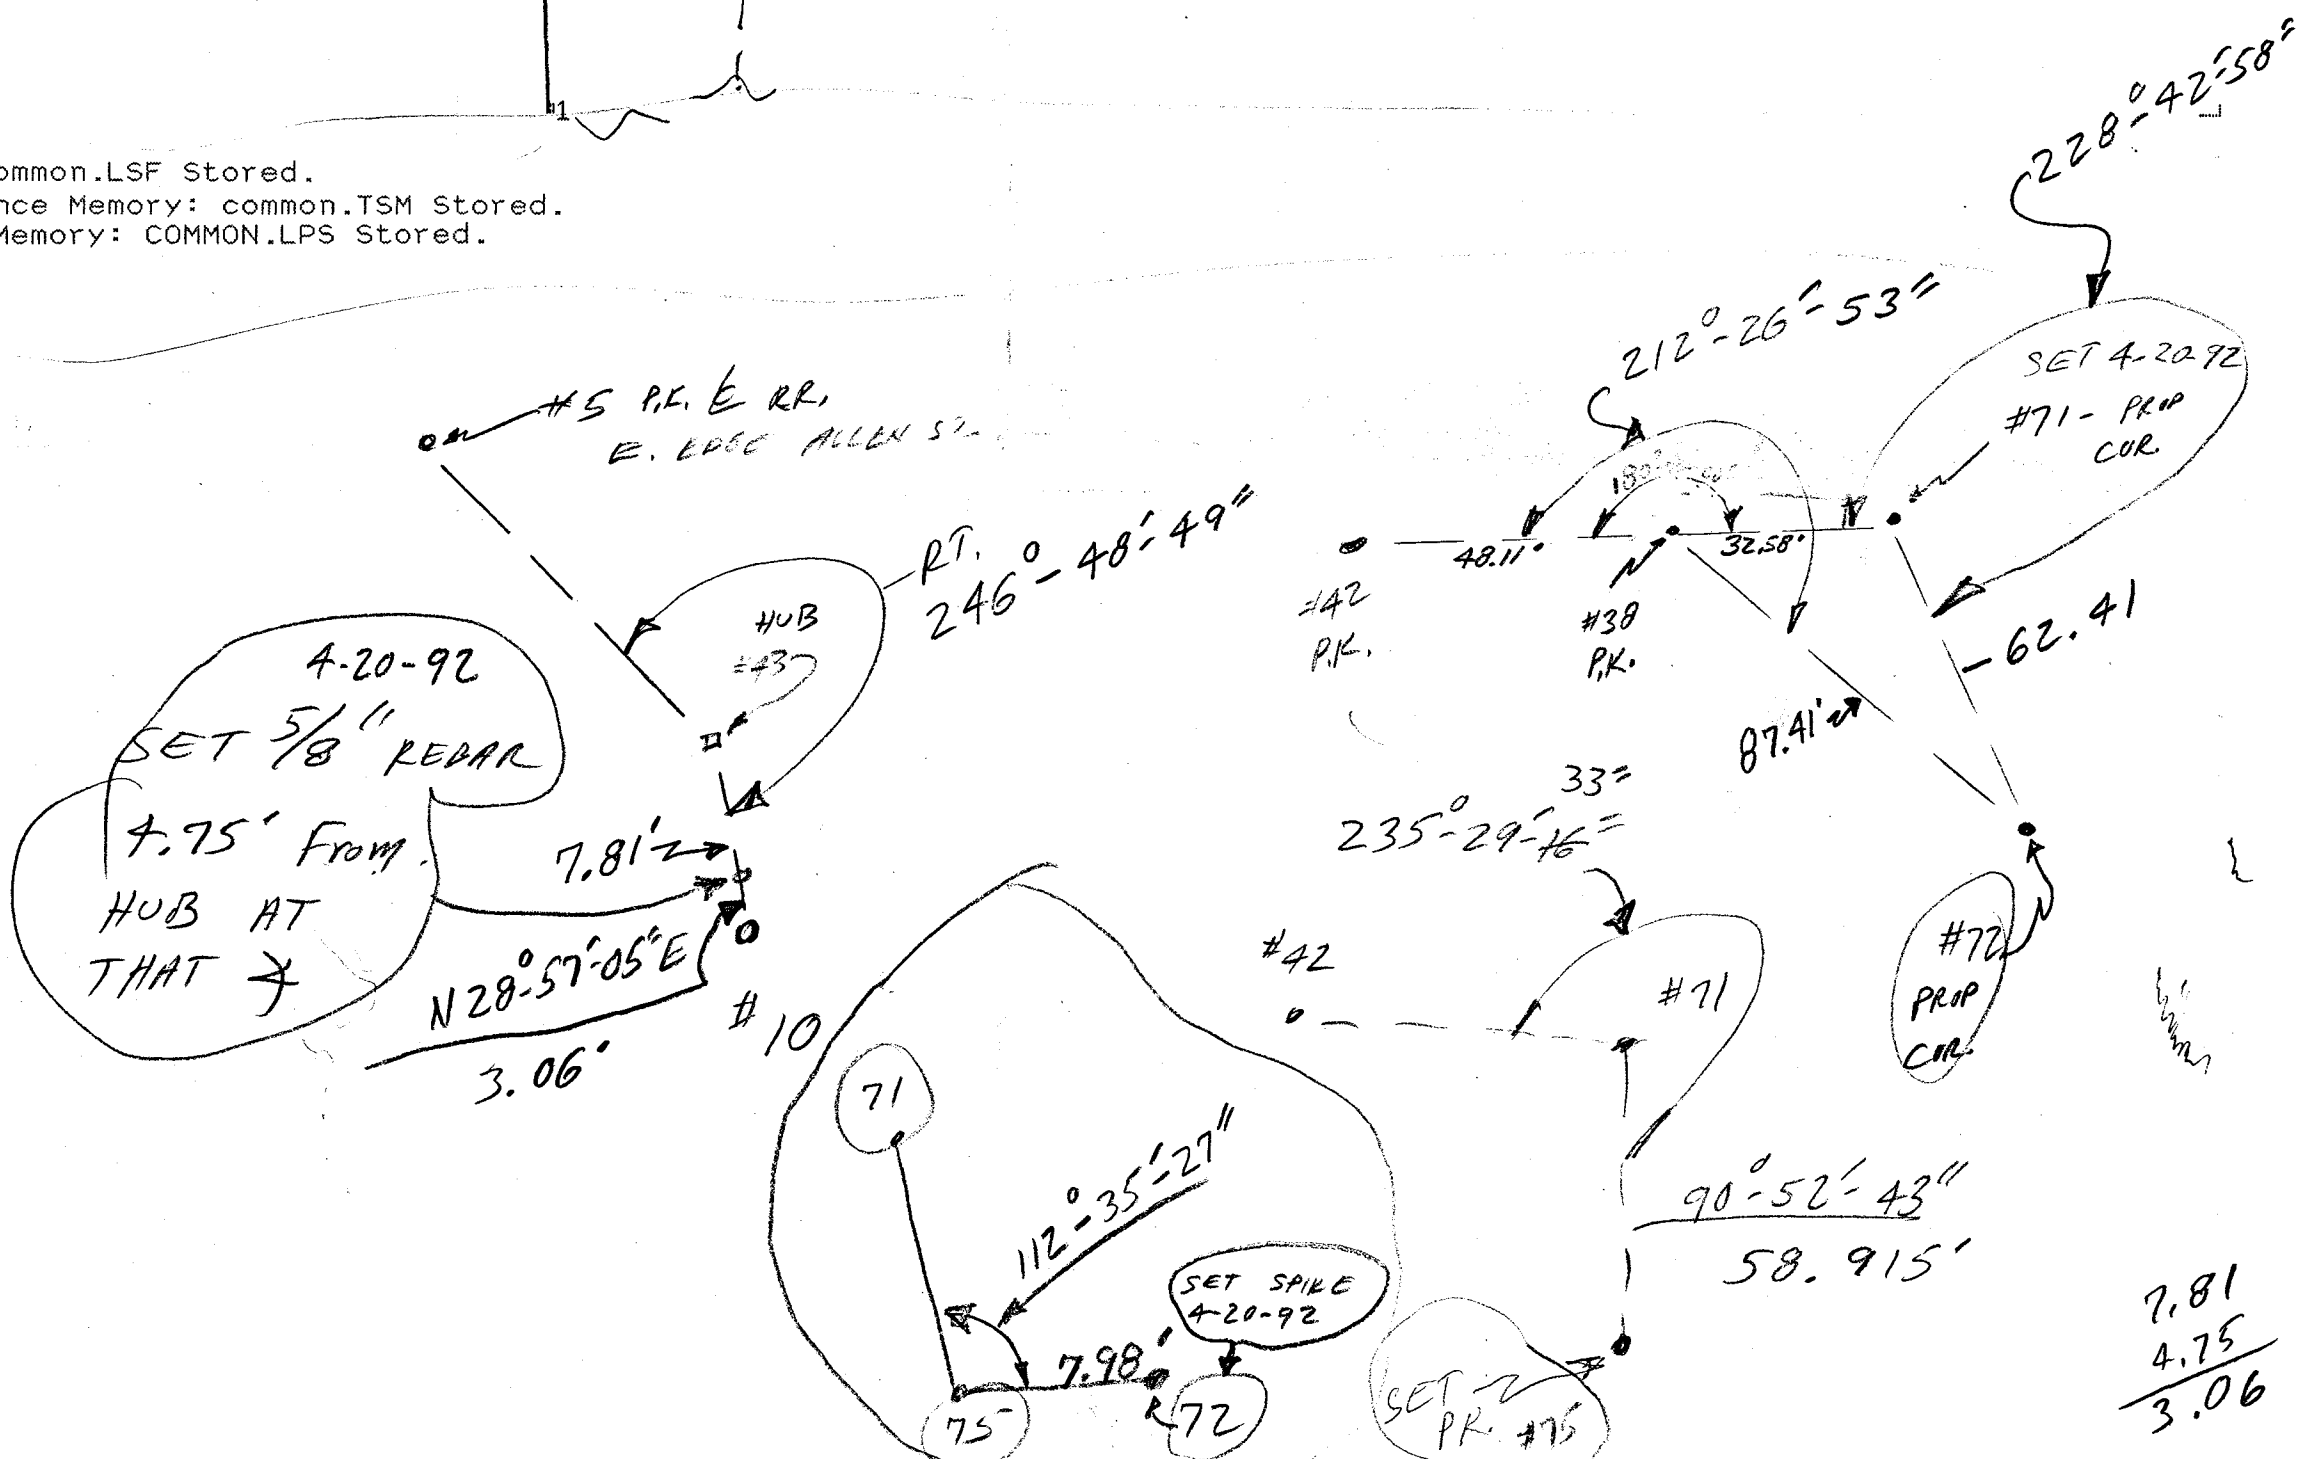 1
ommon.LSF Stored.
nce Memory: common.TSM Stored.
Memory: COMMON.LPS Stored.
228°-42'-58"
212°-26'-53"
SET 4-20-92
#71 - PROP
COR.
#5 P.K. RR.
E. EDGE ALLEN
RT.
246°-48'-49"
HUB
#43
48.11'
32.58'
#42
P.K.
#38
P.K.
-62.41
87.41'
4-20-92
SET 5/8" REBAR
4.75' From
HUB AT
THAT
7.81'
N28°-57'-05"E
3.06'
#10
33"
235°-29'-16"
#42
#71
#72
PROP
COR.
90°-52'-43"
58.915'
71
112°-35'-27"
SET SPIKE
4-20-92
7.98'
75
72
SET
P.K. #75
7.81
4.75
3.06